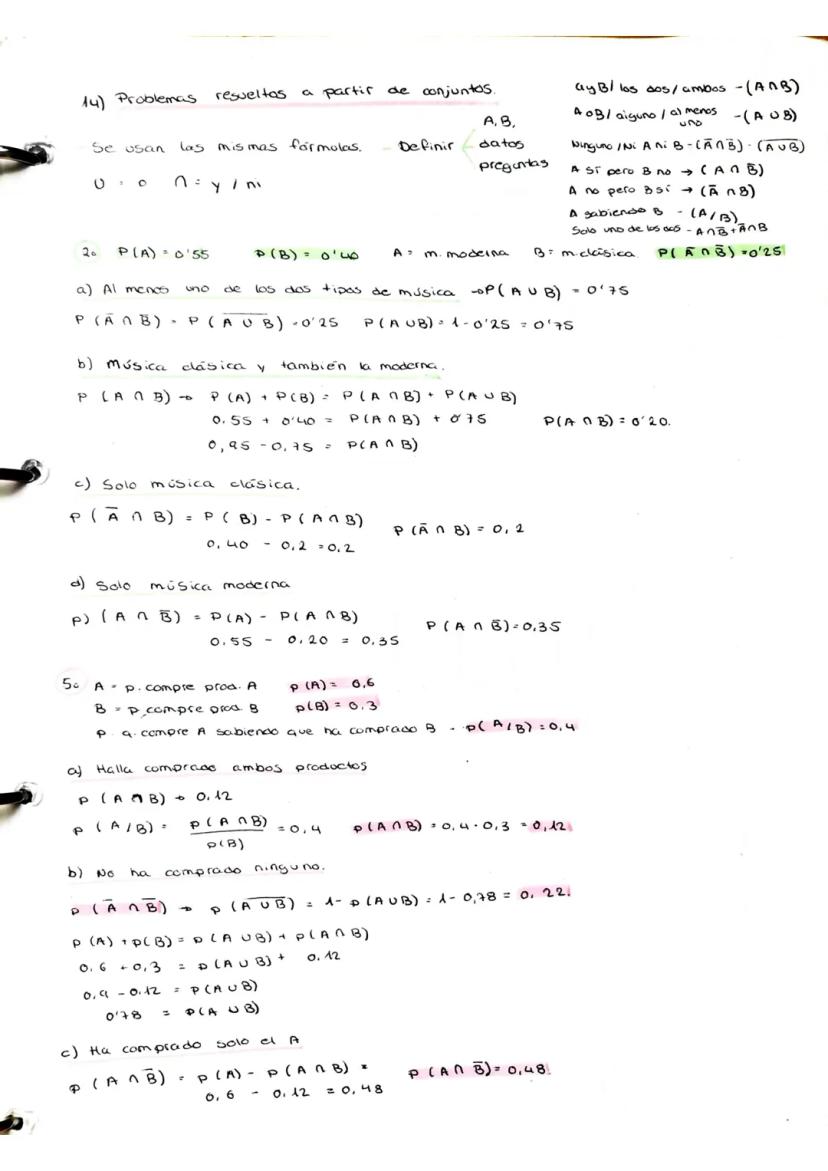 14) Problemas resueltos a partir de conjuntos.
Se usan las mismas fórmulas. - Definir
A, B,
datos
preguntas
U = o ∩ = y / ni
A y B / los dos / ambos - (A ∩ B)
A o B / alguno / al menos uno - (A ∪ B)
Ninguno / Ni A ni B - (A̅ ∩ B̅) - (A̅ ∪̅ B̅)
A sí pero B no → (A ∩ B̅)
A no pero B sí → (A̅ ∩ B)
A sabiendo B - (A/B)
Solo uno de los dos - A∩B̅ + A̅∩B
2. P(A) = 0'55 P(B) = 0'40 A = m. moderna B = m. clásica P(A̅ ∩ B̅) = 0'25
a) Al menos uno de los dos tipos de música → P(A ∪ B) = 0'75
P (A̅ ∩ B̅) = P (A̅ ∪̅ B̅) = 0'25 P(A∪B) = 1 - 0'25 = 0'75
b) Música clásica y también la moderna.
P (A ∩ B) → P(A) + P(B) = P(A ∩ B) + P(A ∪ B)
0.55 + 0'40 = P(A ∩ B) + 0'75 P(A ∩ B) = 0'20.
0,95 - 0,75 = P(A ∩ B)
c) Solo música clásica.
P (A̅ ∩ B) = P(B) - P(A ∩ B)
0,40 - 0,2 = 0,2 P(A̅ ∩ B) = 0,2
d) Solo música moderna
P) (A ∩ B̅) = P(A) - P(A ∩ B)
0.55 - 0,20 = 0,35 P(A ∩ B̅) = 0,35
5. A = p. compre prod. A p(A) = 0,6
B = p. compre prod B p(B) = 0,3
p. q. compre A sabiendo que ha comprado B - p(A/B) = 0,4
a) Halla comprado ambos productos
p (A ∩ B) → 0.12
p (A/B) = p(A ∩ B) / p(B) = 0,4 p(A ∩ B) = 0,4 · 0,3 = 0,12
b) No ha comprado ninguno.
p (A̅ ∩ B̅) → p (A̅ ∪̅ B̅) = 1 - p(A∪B) = 1 - 0,78 = 0.22.
p(A) + p(B) = p(A ∪ B) + p(A ∩ B)
0.6 + 0,3 = p(A ∪ B) + 0.12
0,9 - 0.12 = p(A ∪ B)
0'78 = p(A ∪ B)
c) Ha comprado solo el A
p (A ∩ B̅) = p(A) - p(A ∩ B) = p(A ∩ B̅) = 0,48.
0,6 - 0.12 = 0,48